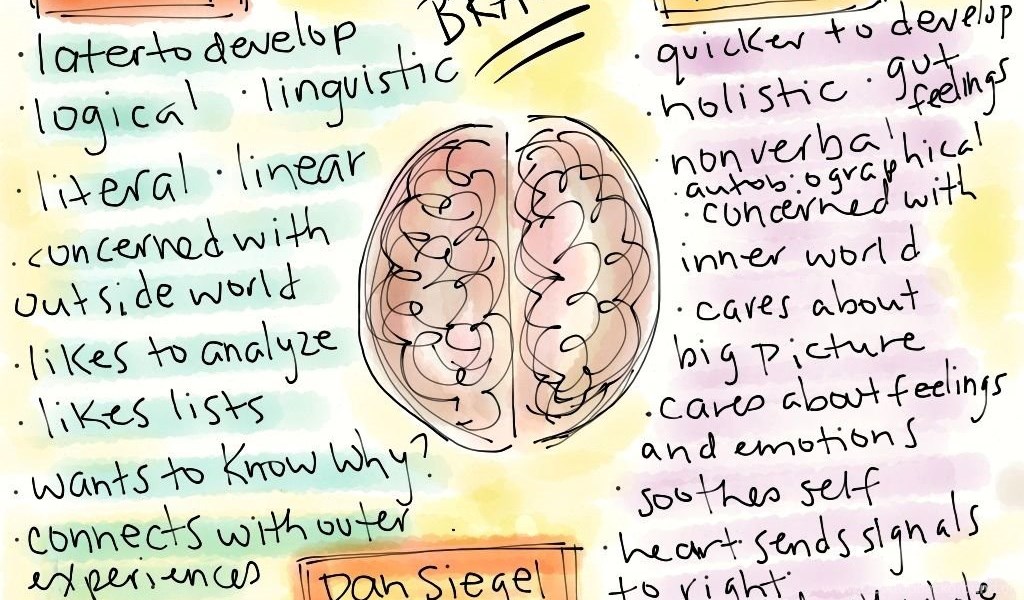 · later to develop
· logical · linguistic
· literal · linear
· concerned with
outside world
· likes to analyze
· likes lists
· wants to know why?
· connects with outer
experiences
Dan Siegel
· quicker to develop
· holistic · gut
feelings
· nonverbal
· autobiographical
· concerned with
inner world
· cares about
big picture
· cares about feelings
and emotions
· soothes self
· heart sends signals
to right